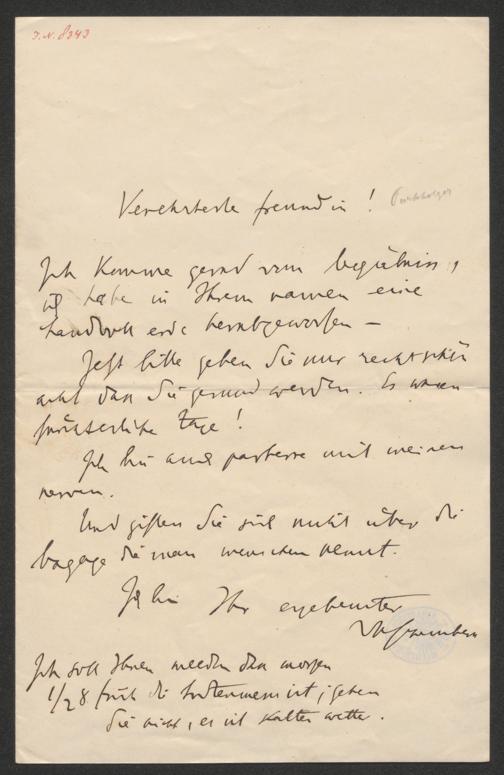 I.N. 8343
Verehrteste freundin!
Ich komme gerad vom begräbniss,
ich habe in Ihrem namen eine
handvoll erde herabgeworfen –
Jetzt bitte geben Sie nur recht schön
acht dass Sie gesund werden. Es waren
fürchterliche tage!
Ich bin auch parterre mit meinen
nerven.
Und giften Sie sich nicht über die
bagage die man menschen nennt.
Ich bin Ihr ergebenster
Ich soll Ihnen melden dass morgen
1/2 8 früh die todtenmesse ist; gehen
Sie nicht, es ist kaltes wetter.